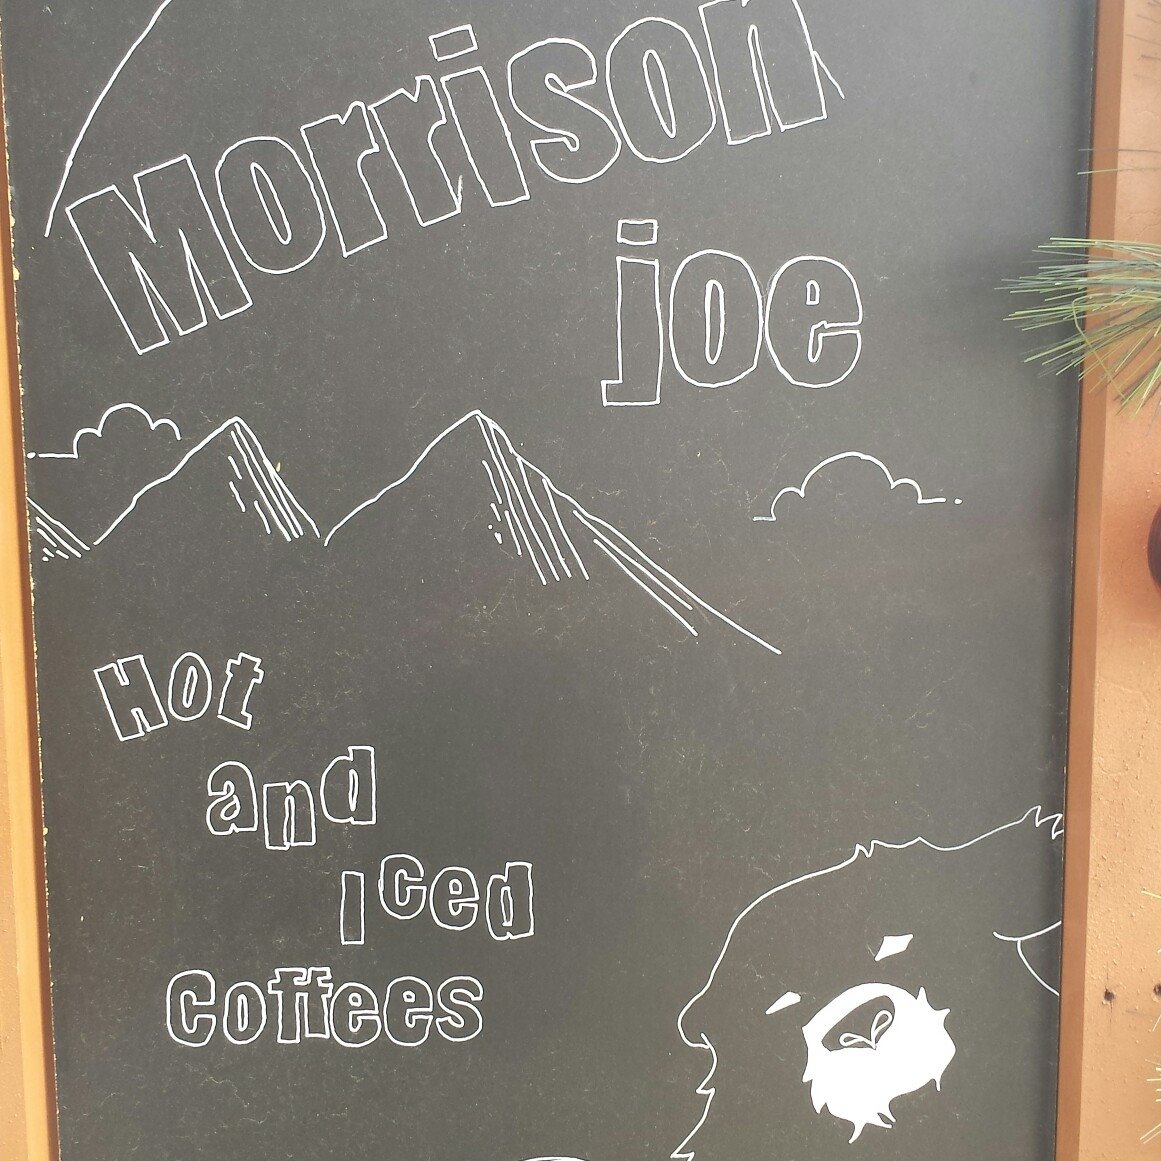 Morrison
joe
Hot
and
Iced
Coffees